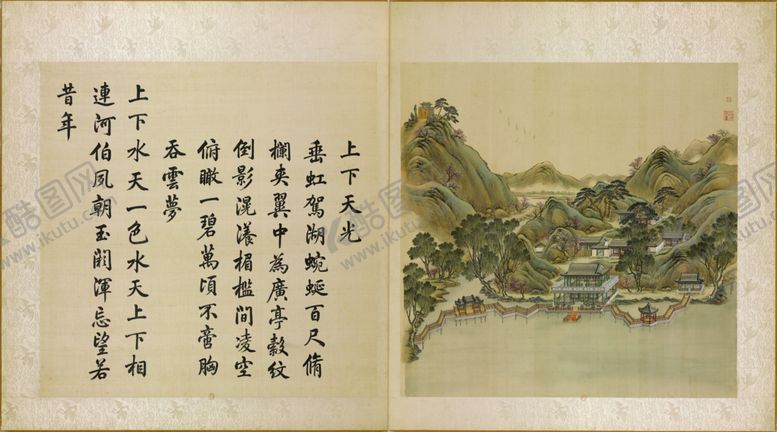 上下天光
垂虹駕湖蜿蜒百尺脩
欄夾翼中為廣亭縠紋
倒影滉瀁楣檻間凌空
俯瞰一碧萬頃不啻胸
吞雲夢
上下水天一色水天上下相
連河伯夙朝玉闕渾忘望若
昔年
酷图网
www.ikutu.com